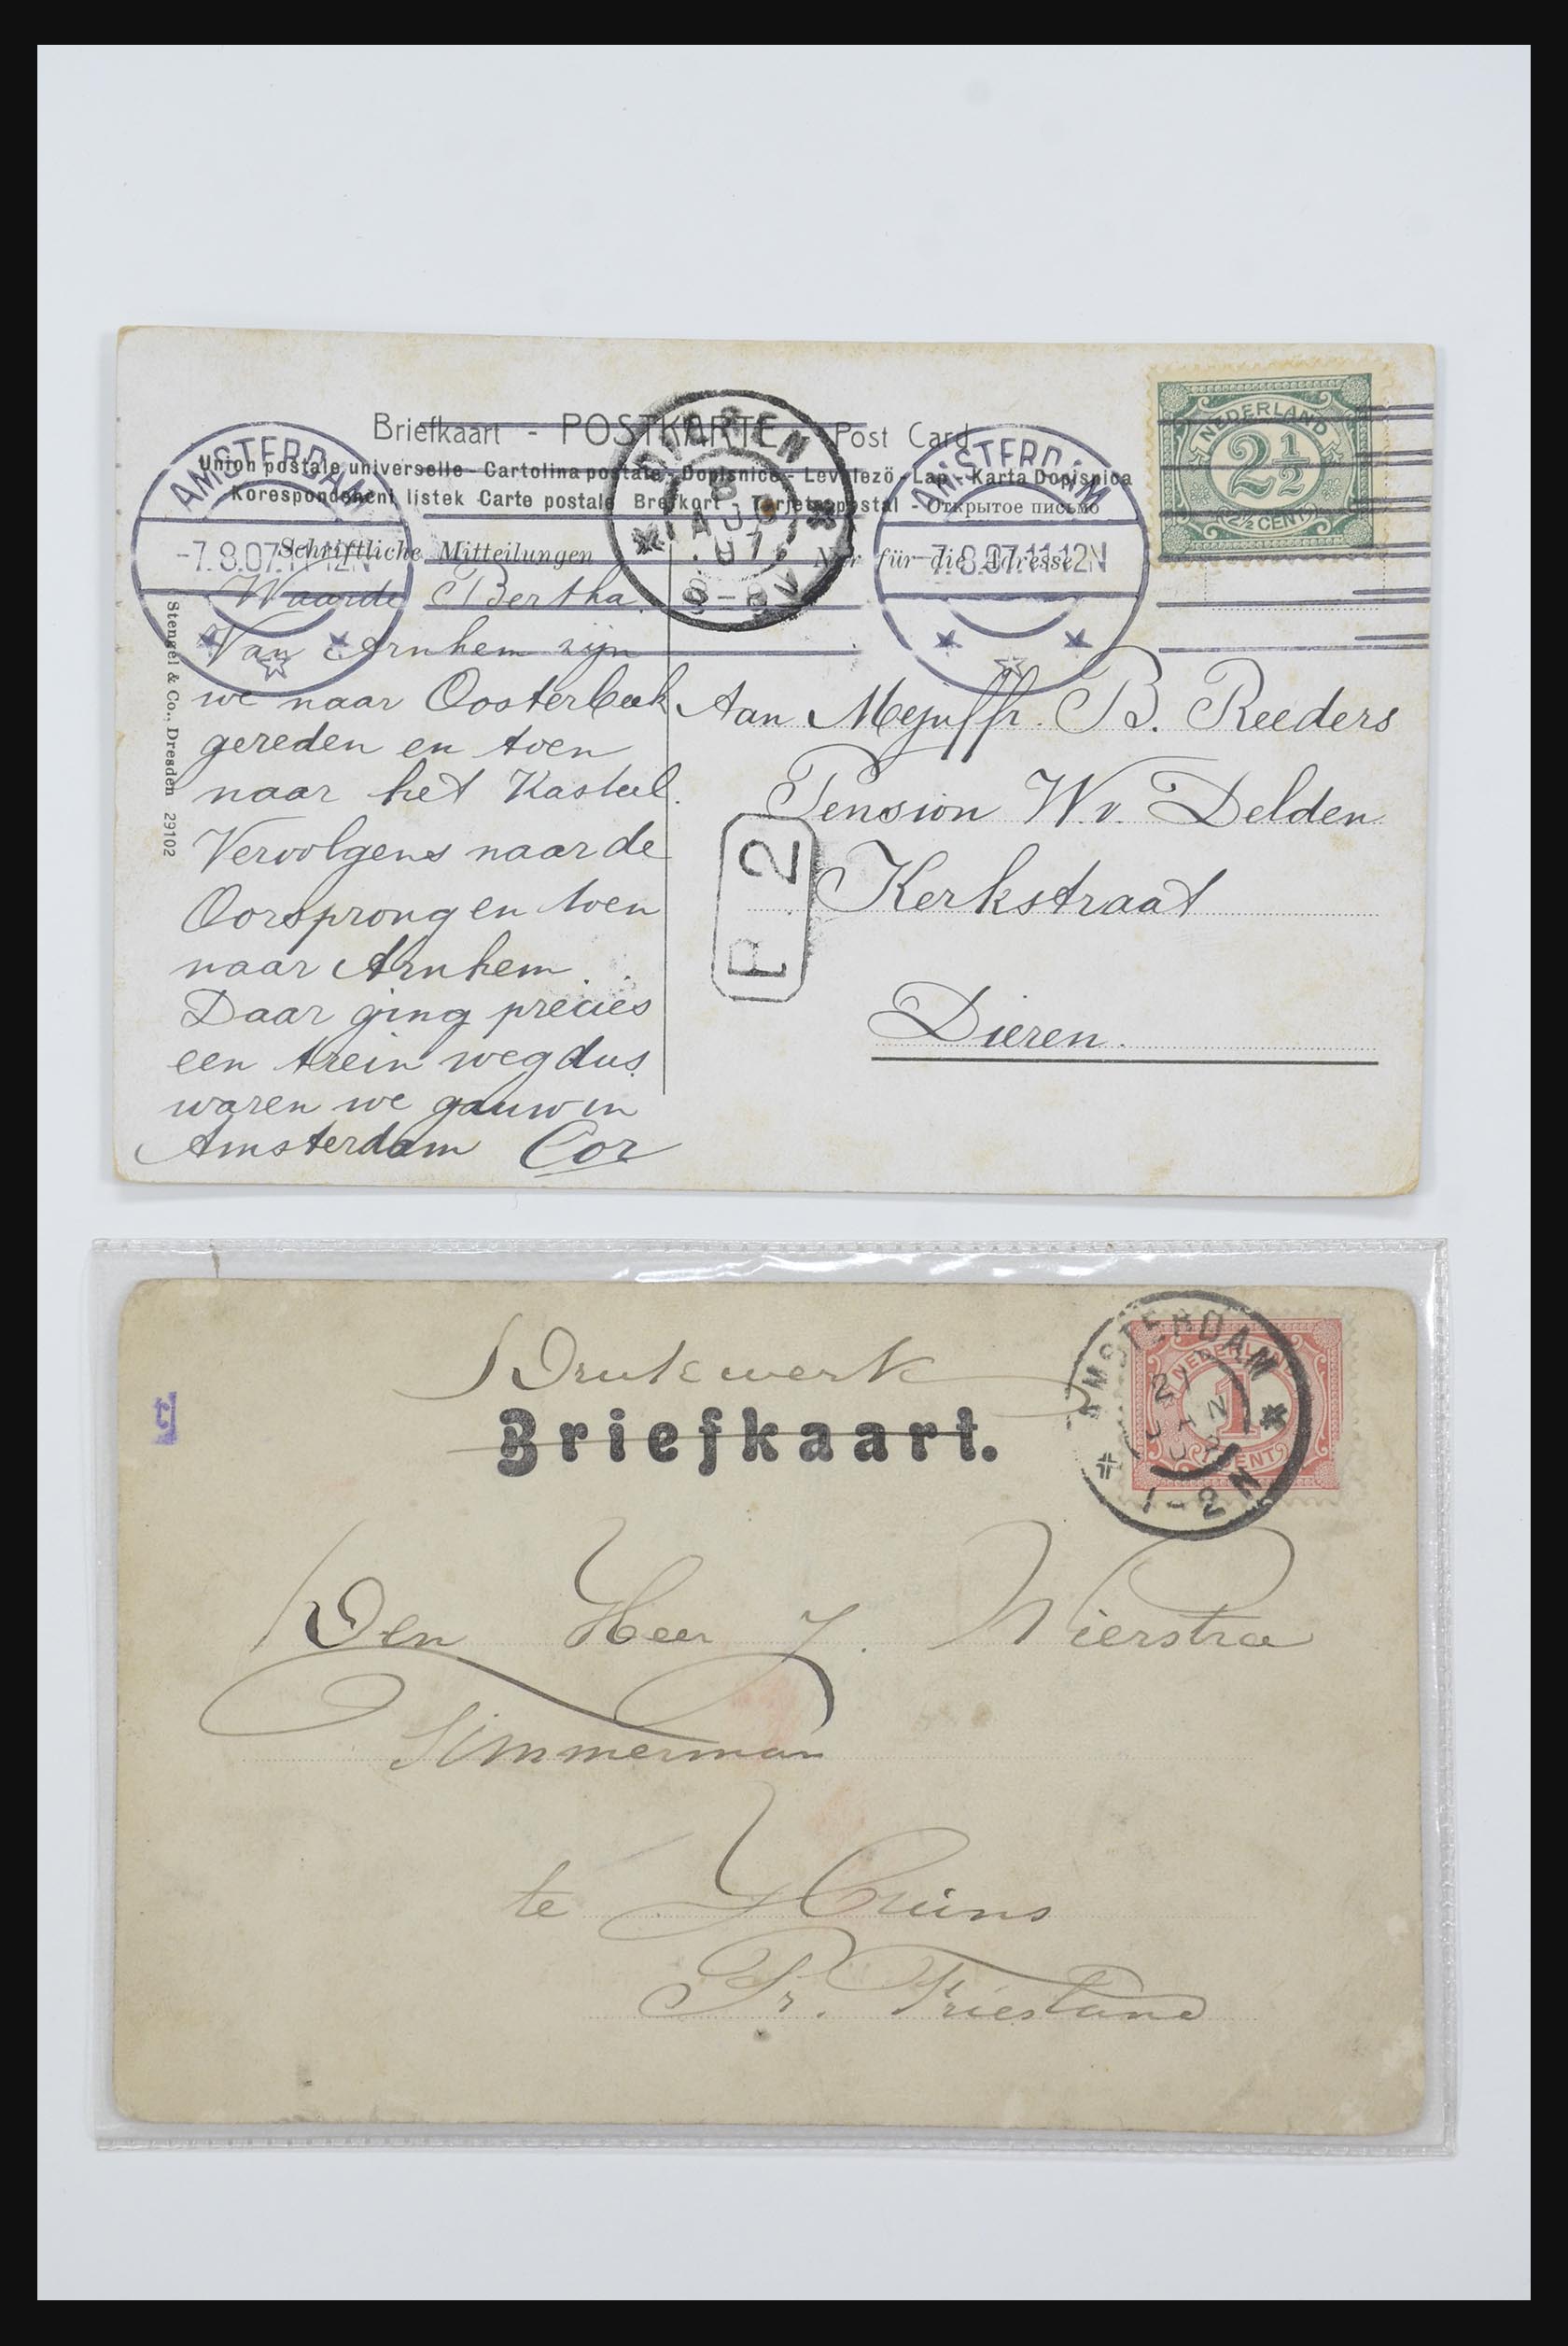 Briefkaart - POSTKARTE - Post Card
Union postale universelle - Cartolina postale - Dopisnice - Levelezö - Lap - Karta Dopisnica
Korespondenční listek Carte postale Brefkort - Tarjeta postal - Открытое письмо
Schriftliche Mitteilungen
Nur für die Adresse
AMSTERDAM
-7.8.07.11-12N
DIEREN
8 AUG 07
8-9V
AMSTERDAM
-7.8.07.11-12N
NEDERLAND
2½
2½ CENT
Waarde Bertha.
Van Arnhem zijn
we naar Oosterbeek
gereden en toen
naar het Kasteel.
Vervolgens naar de
Oorsprong en toen
naar Arnhem.
Daar ging precies
een trein weg dus
waren we gauw in
Amsterdam Cor
Stengel & Co., Dresden 29102
Aan Mejuffr. B. Reeders
Pension W. v. Delden
Kerkstraat
Dieren.
P 2
Drukwerk
Briefkaart.
AMSTERDAM
21
1-2N
NEDERLAND
1
CENT
Den Heer J. Wierstra
Timmerman
te
Pr. Friesland